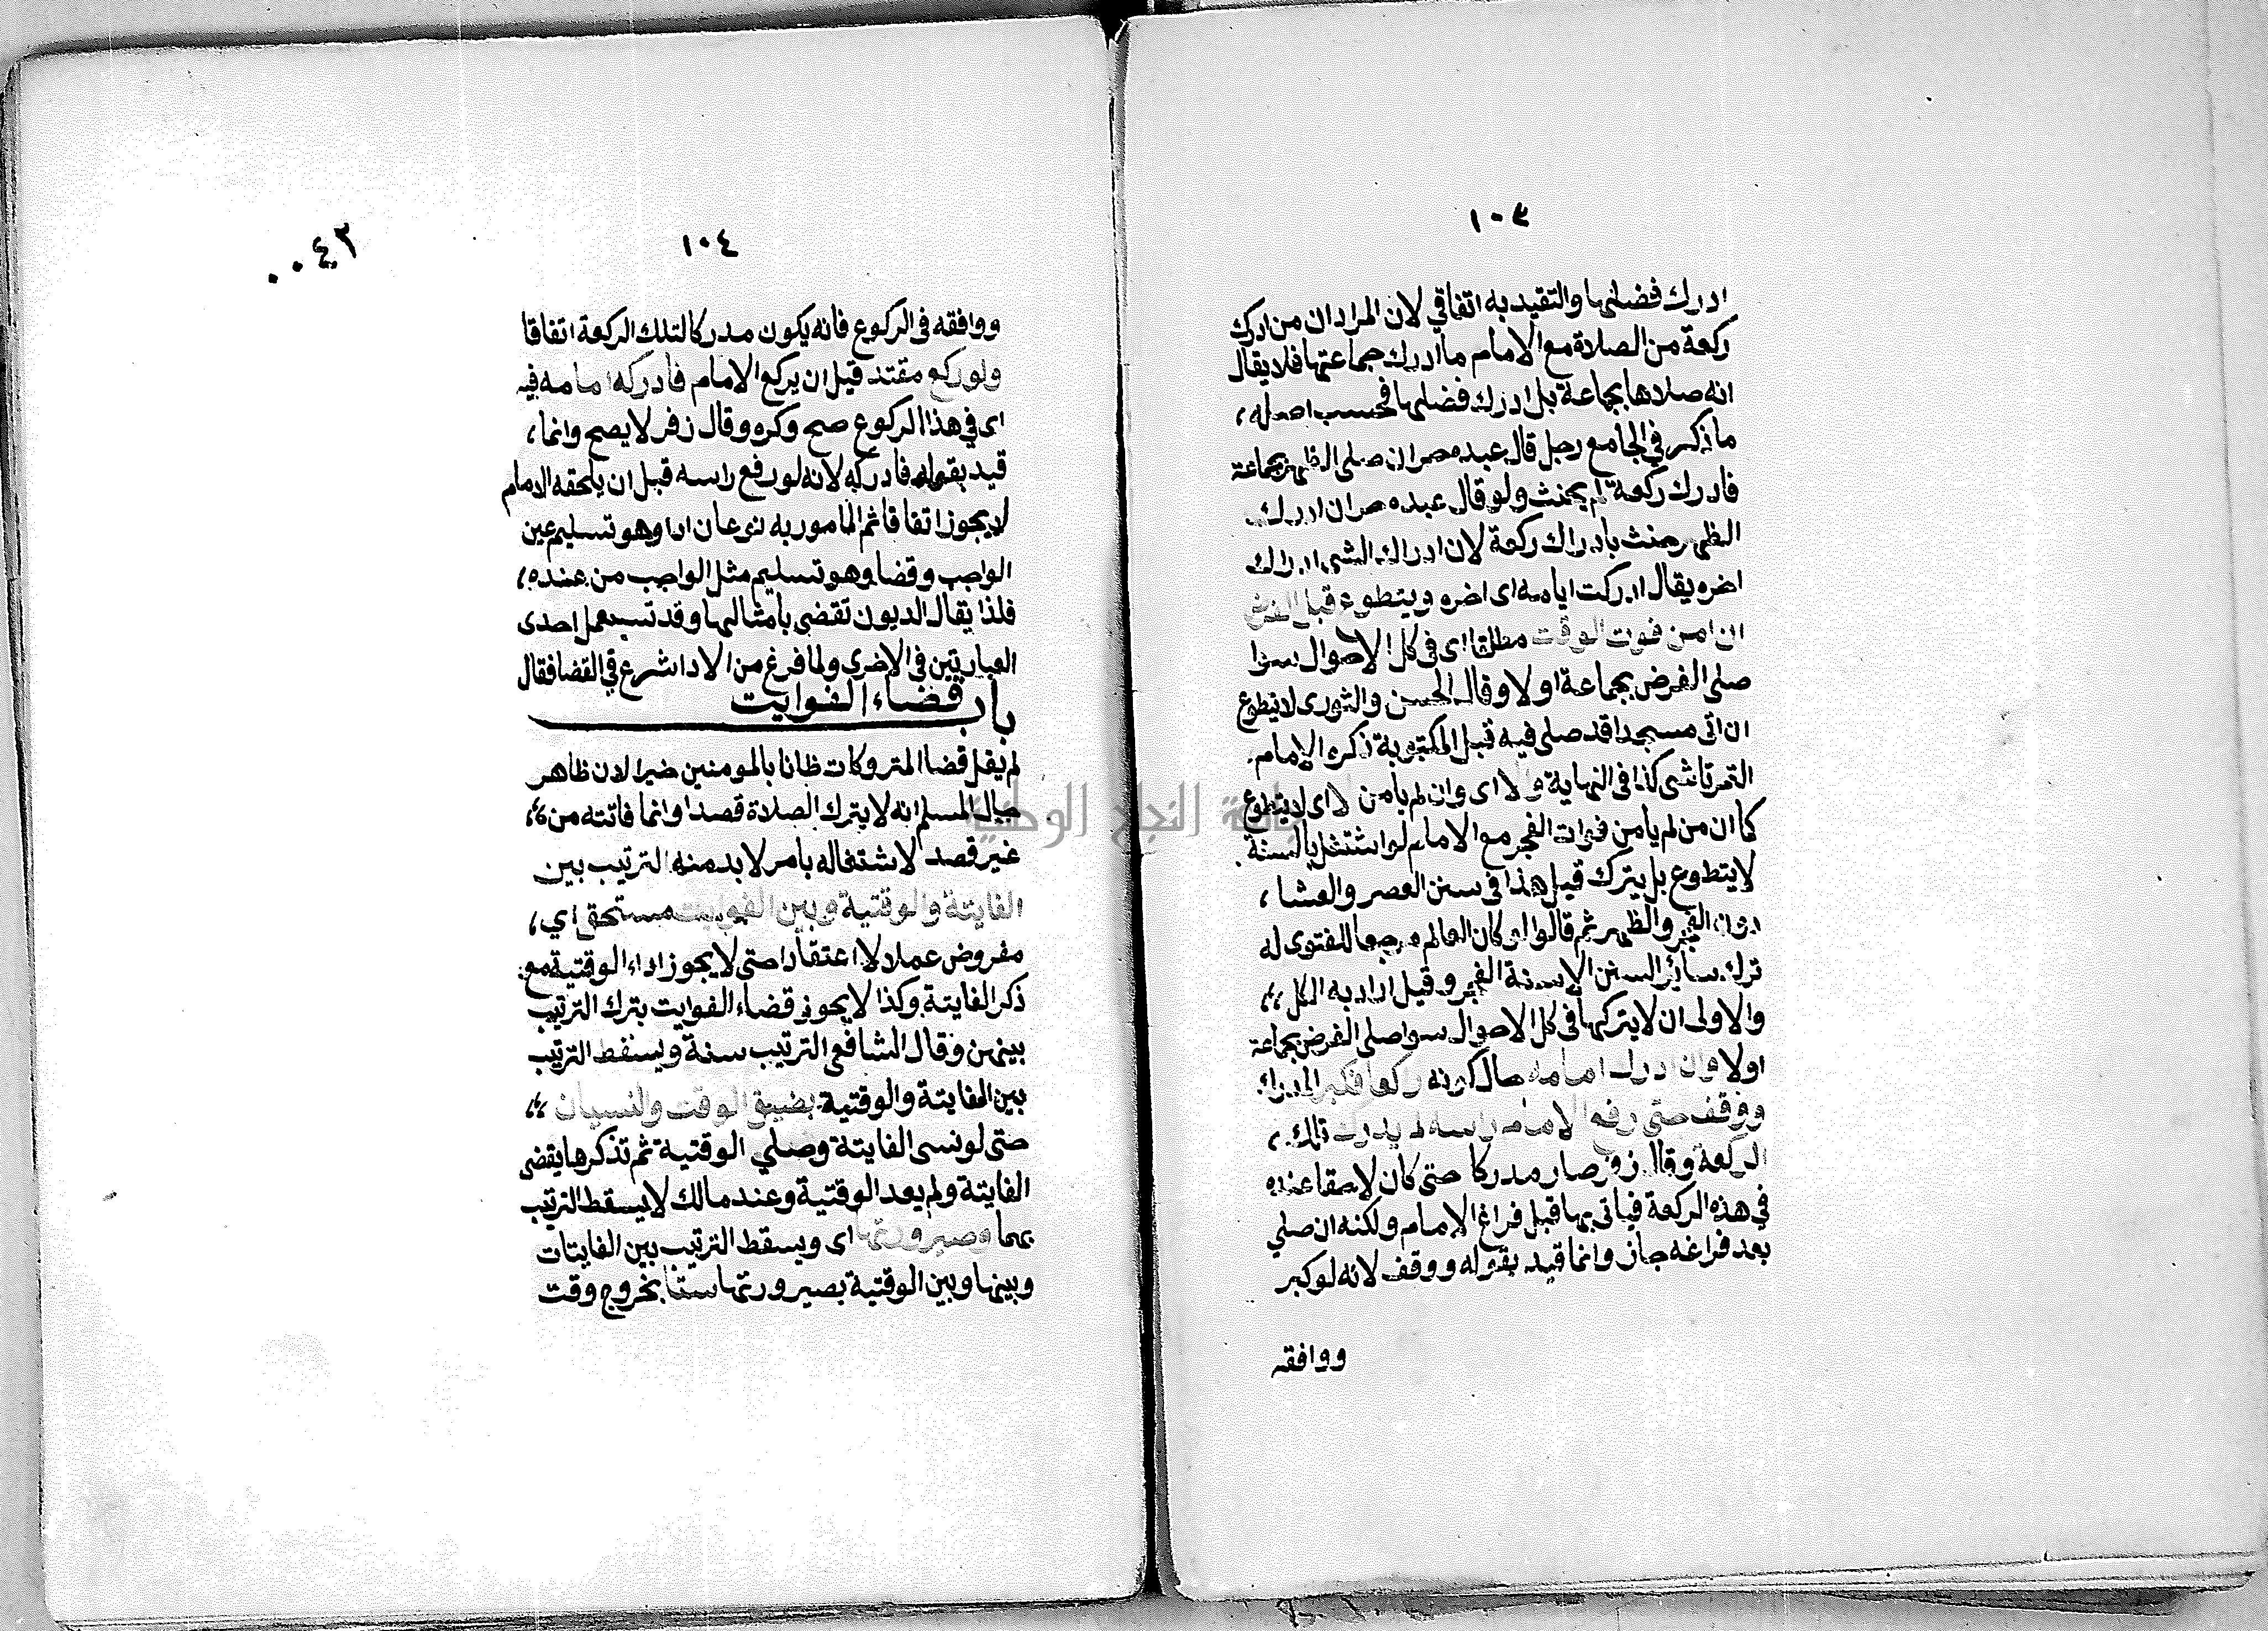 ١٠٣
ادرك فضلها والتقيد به اتفاقي لان المراد ان من ادرك
ركعة من الصلاة مع الامام ما ادرك جماعتها فلا يقال
انه صلاها بجماعة بل ادرك فضلها فحسب اصله
ما ذكر في الجامع رجل قال عبده حر ان صلى الظهر بجماعة
فادرك ركعة لم يحنث ولو قال عبده حر ان ادرك
الظهر حنث بادراك ركعة لان ادراك الشي ادراك
اخره يقال ادركت ايامه اى اخره ويتطوع قبل الفرض
ان امن فوت الوقت مطلقا اى فى كل الاحوال سوا
صلى الفرض بجماعة او لا وقال الحسن والثورى لا يتطوع
ان اتى مسجدا قد صلى فيه قبل المكتوبة ذكره الامام
التمرتاشى كذا فى النهاية والا اى وان لم يأمن لا اى لا يتطوع
كما ان من لم يامن فوات الفجر مع الامام لو اشتغل بالسنة
لا يتطوع بل يترك قيل هذا فى سنن العصر والعشا
دون الفجر والظهر ثم قالوا لو كان العالم مرجعا للفتوى له
ترك سائر السنن الا سنة الفجر وقيل اراد به الكل
والاولى ان لا يتركها فى كل الاحوال سوا صلى الفرض بجماعة
اولا وان ادرك امامه حال كونه راكعا فكبر المدرك
ووقف حتى رفع الامام راسه لم يدرك تلك
الركعة وقال زفر صار مدركا حتى كان لاحقا عنده
في هذه الركعة فياتى بها قبل فراغ الامام ولكنه ان صلي
بعد فراغه جاز وانما قيد بقوله ووقف لانه لو كبر
ووافقه
١٠٤
٠٠٤٣
ووافقه فى الركوع فانه يكون مدركا لتلك الركعة اتفاقا
ولو ركع مقتد قبل ان يركع الامام فادركه امامه فيه
اى في هذا الركوع صح وكره وقال زفر لا يصح وانما
قيد بقوله فادركه لانه لو رفع راسه قبل ان يلحقه الامام
لا يجوز اتفاقا ثم المامور به نوعان ادا وهو تسليم عين
الواجب وقضا وهو تسليم مثل الواجب من عنده
فلذا يقال الديون تقضى بامثالها وقد تستعمل احدى
العبارتين فى الاخرى ولما فرغ من الادا شرع في القضا فقال
باب قضاء الفوايت
لم يقل قضا المتروكات ظانا بالمومنين خيرا لان ظاهر
حال المسلم انه لا يترك الصلاة قصدا وانما فاتته من
غير قصد لاشتغاله بامر لا بد منه الترتيب بين
الفايتة والوقتية وبين الفوايت مستحق اي
مفروض عملا لا اعتقادا حتى لا يجوز اداء الوقتية مع
ذكر الفايتة وكذا لا يجوز قضاء الفوايت بترك الترتيب
بينهن وقال الشافعى الترتيب سنة ويسقط الترتيب
بين الفايتة والوقتية بضيق الوقت والنسيان
حتى لو نسى الفايتة وصلي الوقتية ثم تذكرها يقضى
الفايتة ولم يعد الوقتية وعند مالك لا يسقط الترتيب
بهما وصيرورتها اى ويسقط الترتيب بين الفايتات
وبينها وبين الوقتية بصيرورتها ستا بخروج وقت
جامعة النجاح الوطنية